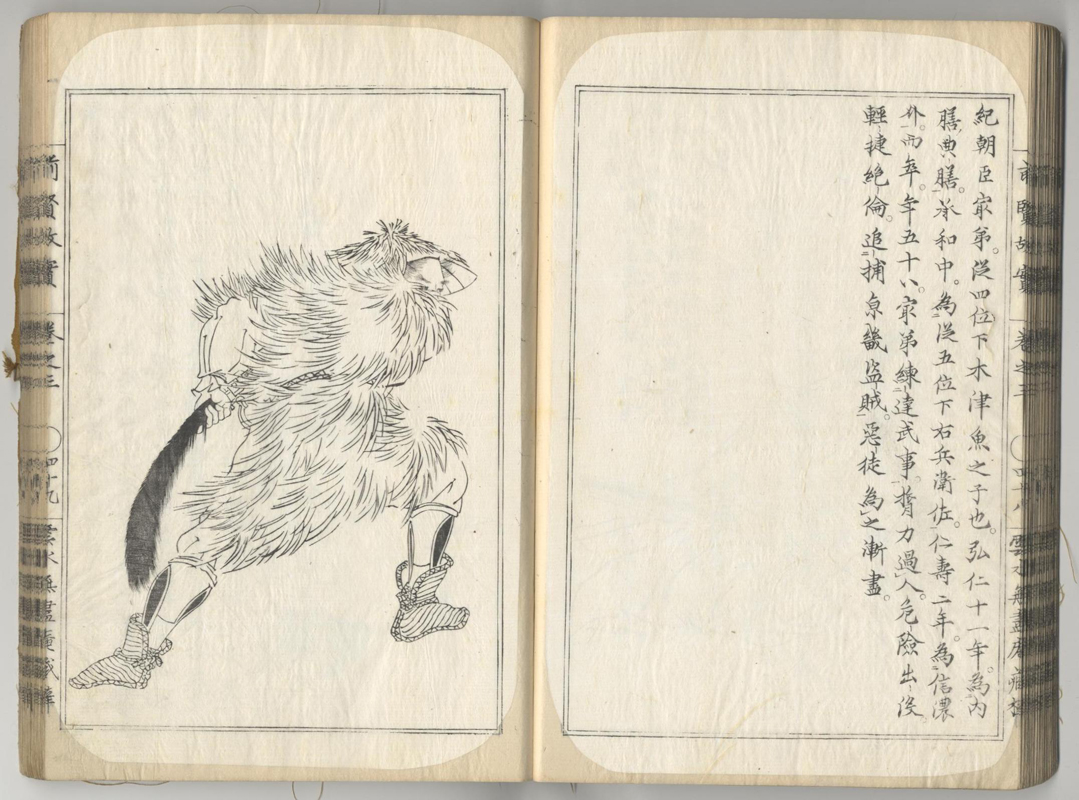 紀朝臣冣弟。從四位下木津魚之子也。弘仁十一年。為内
膳典膳。承和中。為從五位下右兵衛佐。仁壽二年。為信濃
介。而卒。年五十八。冣弟練達武事。膂力過人。危險出没
輕捷絶倫。追捕京畿盗賊。惡徒為之漸盡。
前賢故實 卷之三 〇四十八 雲水無盡庵藏梓
前賢故實 卷之三 〇四十九 雲水無盡庵藏梓